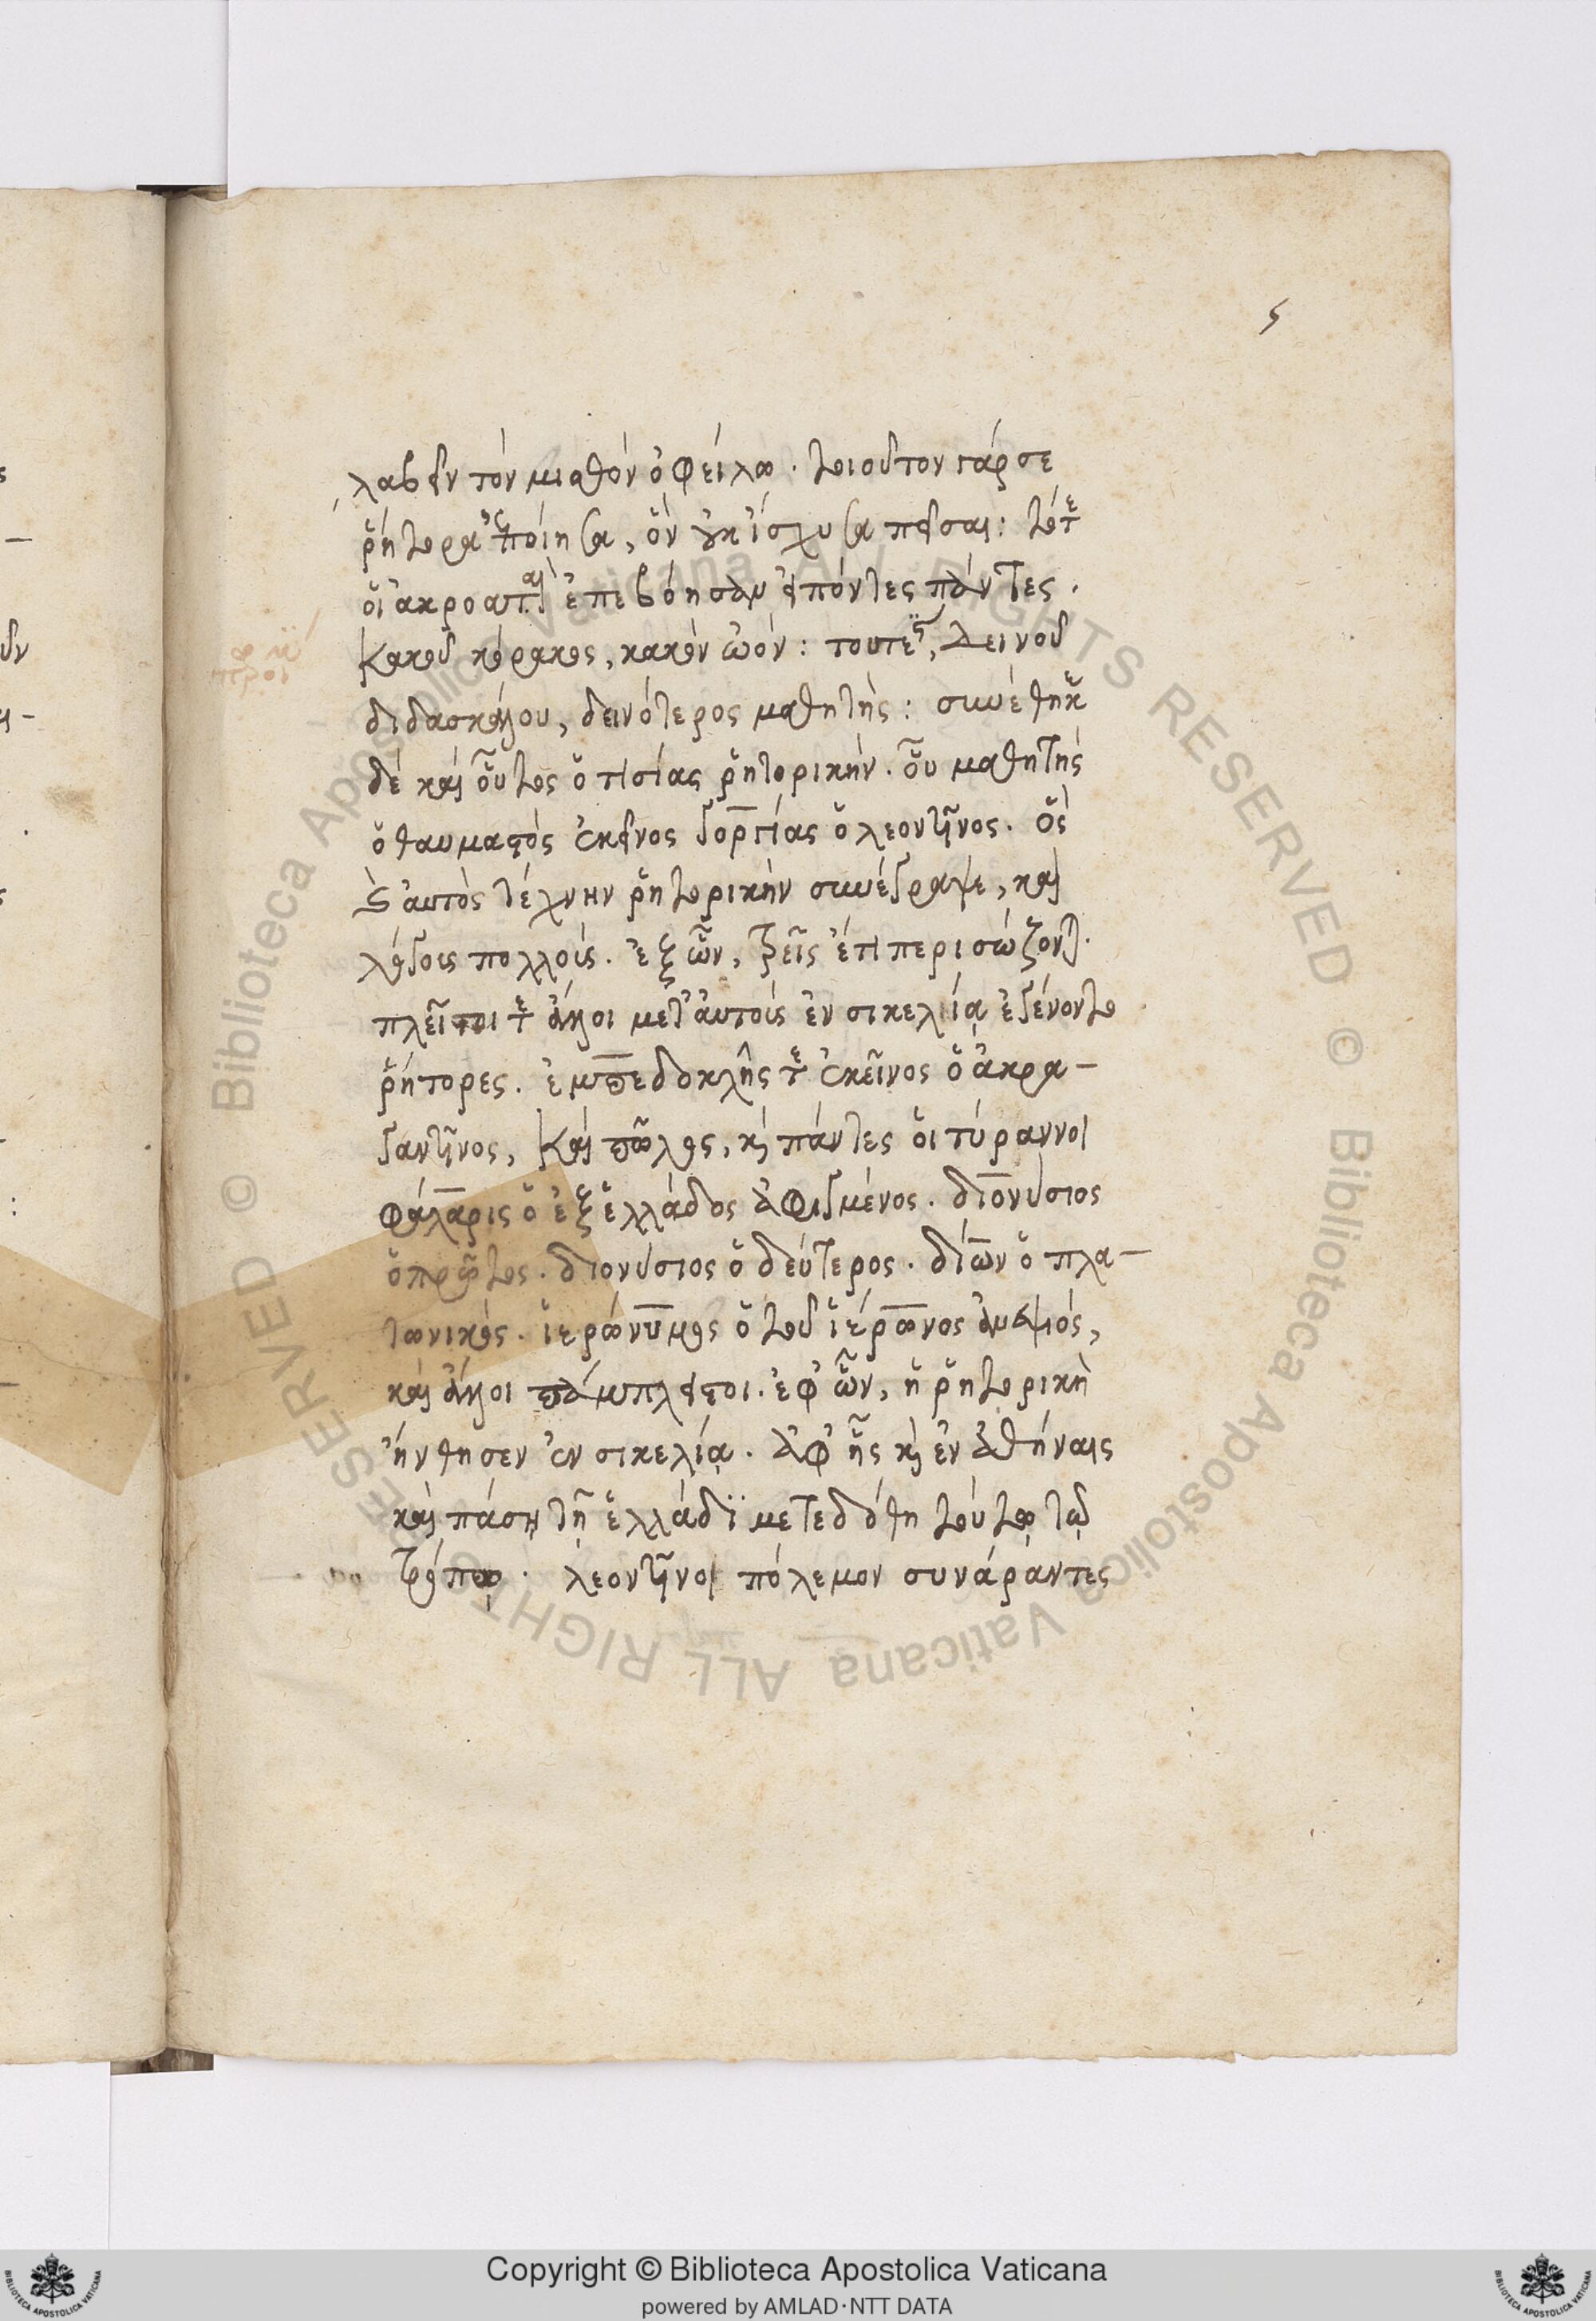 5
λαβεῖν τὸν μισθὸν ὀφείλω. τοιοῦτον γάρ σε
ῥήτορα ἐποίησα, ὃν οὐκ ἴσχυσα πεῖσαι: τότε
οἱ ἀκροαταὶ ἐπεβόησαν εἰπόντες πάντες.
κακοῦ κόρακος, κακὸν ὠόν: τουτέστι, δεινοῦ
διδασκάλου, δεινότερος μαθητὴς: συνέθηκε
δὲ καὶ οὗτος ὁ τισίας ῥητορικήν. οὗ μαθητὴς
ὁ θαυμαστὸς ἐκεῖνος γοργίας ὁ λεοντῖνος. ὃς
καὶ αὐτὸς τέχνην ῥητορικὴν συνέγραψε, καὶ
λόγοις πολλοῖς. ἐξ ὧν, τρεῖς ἔτι περισώζονται.
πλεῖστοι τε ἄλλοι μετ' αὐτοὺς ἐν σικελίᾳ ἐγένοντο
ῥήτορες. ἐμπεδοκλῆς τε ἐκεῖνος ὁ ἀκρα-
γαντῖνος, καὶ πῶλος, καὶ πάντες οἱ τύραννοι
φάλαρις ὁ ἐξ ἑλλάδος ἀφιγμένος. διονύσιος
ὁ πρῶτος. διονύσιος ὁ δεύτερος. δίων ὁ πλα-
τωνικός. ἱερώνυμος ὁ τοῦ ἱέρωνος ἀνεψιός,
καὶ ἄλλοι πάμπλειστοι. ἐφ' ὧν, ἡ ῥητορικὴ
ἤνθησεν ἐν σικελίᾳ. ἀφ' ἧς καὶ ἐν ἀθήναις
καὶ πάσῃ τῇ ἑλλάδϊ μετεδόθη τούτῳ τῷ
τρόπῳ. λεοντῖνοι πόλεμον συνάραντες
© Biblioteca Apostolica Vaticana ALL RIGHTS RESERVED © Biblioteca Apostolica Vaticana ALL RIGHTS RESERVED
Copyright © Biblioteca Apostolica Vaticana
powered by AMLAD·NTT DATA